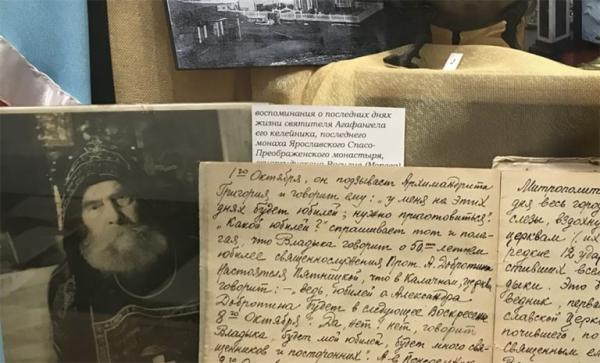 воспоминания о последних днях
жизни святителя Агафангела
его келейника, последнего
монаха Ярославского Спасо-
Преображенского монастыря,
1го Октября, он подзывает Архимандрита
Григория и говорит ему: "у меня на этих
днях будет юбилей; нужно приготовиться!"
"Какой юбилей?" спрашивает тот и пола-
гая, что Владыка говорит о 50ти летнем
юбилее священнослужения Прот. А. Добротина
Настоятеля Пятницкой, что в Калачном, церкви
говорит: –, ведь юбилей о. Александра
Добротина будет в следующее Воскресенье
8го Октября! "Да, нет, нет, говорит
Владыка, будет мой юбилей, будет много свя-
щенников и посторонних".
Митрополита
дня весь горо
слезы, вздохну
церквам
редкие 12 удар
стивших всех
дыки. Это б
ведник, перва
славской Церк
почившего, по
священным